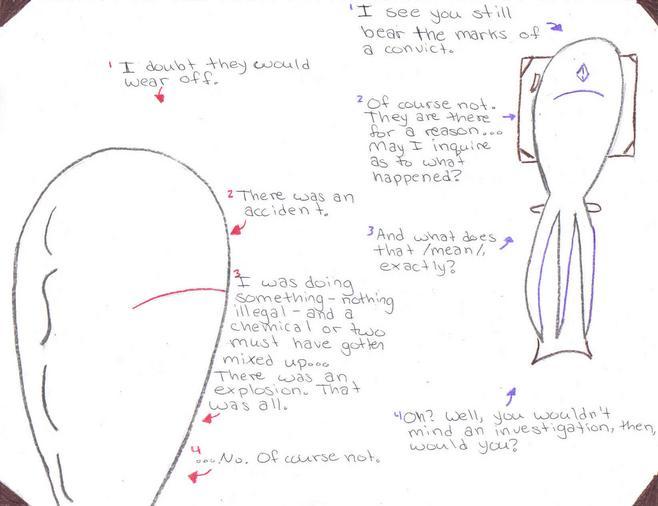 1 I see you still
bear the marks of
a convict.
1 I doubt they would
wear off.
2 Of course not.
They are there
for a reason...
May I inquire
as to what
happened?
2 There was an
accident.
3 And what does
that /mean/,
exactly?
3 I was doing
something - nothing
illegal - and a
chemical or two
must have gotten
mixed up...
There was an
explosion. That
was all.
4 Oh? Well, you wouldn't
mind an investigation, then,
would you?
4 ...No. Of course not.